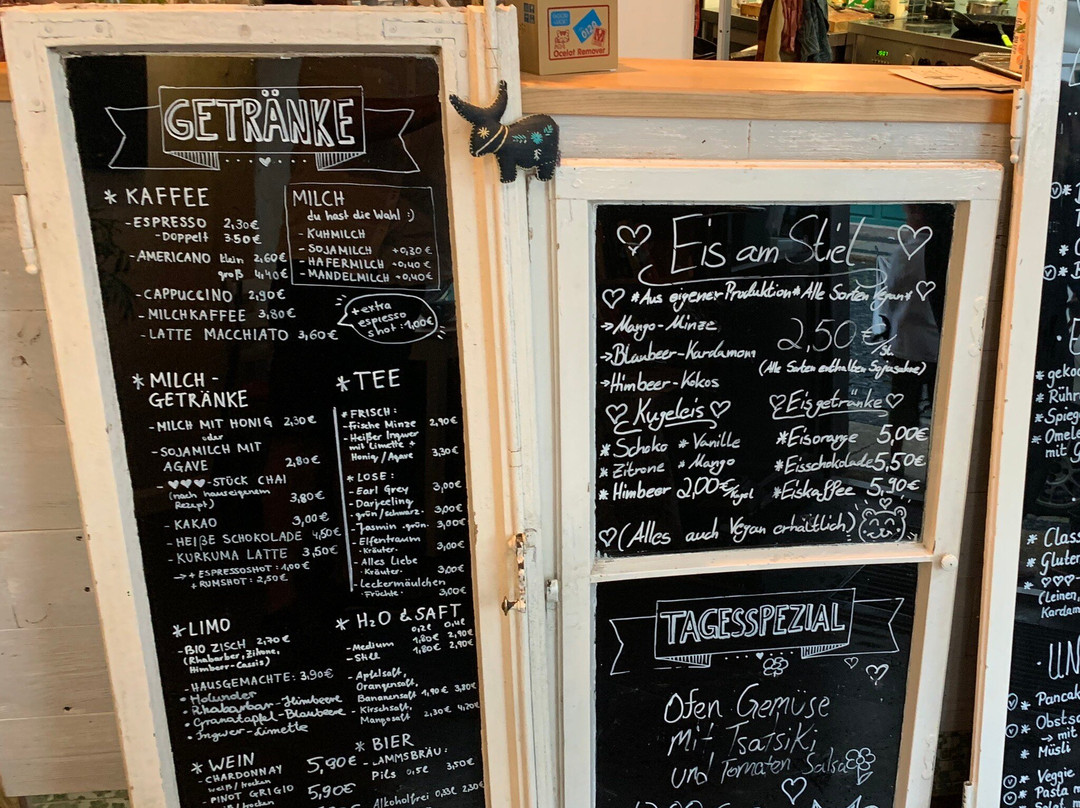 Ocelot Remover
GETRÄNKE
* KAFFEE
- ESPRESSO 2,30€
- Doppelt 3.50€
- AMERICANO klein 2,60€
groß 4,40€
- CAPPUCCINO 2,90€
- MILCHKAFFEE 3,80€
- LATTE MACCHIATO 3,60€
MILCH
du hast die Wahl :)
- KUHMILCH
- SOJAMILCH +0,30€
- HAFERMILCH +0,40€
- MANDELMILCH +0,40€
+ extra
espresso
shot: 1,00€
* MILCH-
GETRÄNKE
- MILCH MIT HONIG 2,30€
oder
- SOJAMILCH MIT
AGAVE 2,80€
- ♥♥♥-STÜCK CHAI
(nach hauseigenem
Rezept) 3,80€
- KAKAO 3,00€
- HEIßE SCHOKOLADE 4,50€
- KURKUMA LATTE 3,50€
→ + ESPRESSOSHOT: 1,00€
+ RUMSHOT: 2,50€
* TEE
* FRISCH:
- Frische Minze 2,90€
- Heißer Ingwer
mit Limette +
Honig / Agave 3,30€
* LOSE:
- Earl Grey 3,00€
- Darjeeling
grün/schwarz. 3,00€
- Jasmin .grün. 3,00€
- Elfentraum
.Kräuter. 3,00€
- Alles Liebe
.Kräuter. 3,00€
- Leckermäulchen
.Früchte. 3,00€
* LIMO
- BIO ZISCH 2,70€
(Rhabarber, Zitrone,
Himbeer-Cassis)
- HAUSGEMACHTE: 3,90€
• Holunder
• Rhabarbar-Himbeere
• Granatapfel-Blaubeere
• Ingwer-Limette
* H2O & SAFT
0,2l 0,4l
- Medium 1,80€ 2,90€
- Still 1,80€ 2,90€
- Apfelsaft,
Orangensaft,
Bananensaft 1,90€ 3,80€
- Kirschsaft,
Mangosaft 2,30€ 4,20€
* WEIN
- CHARDONNAY 5,90€
weiß / trocken
- PINOT GRIGIO 5,90€
weiß / trocken
* BIER
- LAMMSBRÄU:
Pils 0,5l 3,50€
Alkoholfrei 0,33l 2,50€
Eis am Stiel
* Aus eigener Produktion * Alle Sorten Vegan *
→ Mango-Minze
→ Blaubeer-Kardamom
→ Himbeer-Kokos
2,50€/St.
(Alle Sorten enthalten Sojasahne)
Kugeleis
* Schoko * Vanille
* Zitrone * Mango
* Himbeer 2,00€/Kugel
Eisgetränke
* Eisorange 5,00€
* Eisschokolade 5,50€
* Eiskaffee 5,90€
(Alles auch Vegan erhältlich)
TAGESSPEZIAL
Ofen Gemüse
mit Tsatsiki
und Tomaten Salsa
* Rühr
* Spieg
* Omele
mit G
* Class
* Gluter
* ♥♥♥-
(Leinen,
Kardam
UN
* Pancak
* Obstsa
→ mit
Müsli
* Veggie
* Pasta m